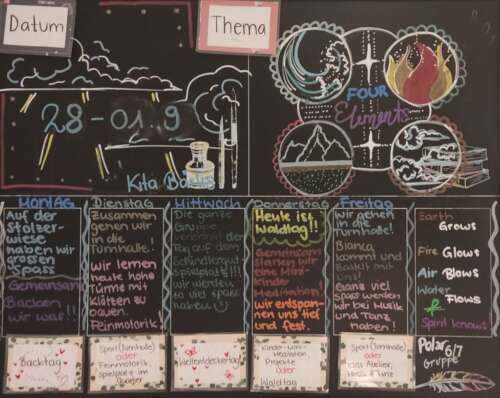 Datum
Thema
28-01.9
Kita Barlus
FOUR
Elements
Montag
Auf der
Stolzer-
wiese
haben wir
grossen
Spass
Gemeinsam
Backen
wir was!!
Dienstag
Zusammen
gehen wir
in die
Turnhalle!
wir lernen
heute hohe
Türme mit
Klötzen zu
bauen.
Feinmotorik!
Mittwoch
Die ganze
Gruppe
Tag auf dem
Schindlergut
Spielplatz!!!
wir werden
so viel Spass
haben
Donnerstag
Heute ist
Waldtag!!
Gemeinsam
wir eine
Mini-
Kinder
Meditation!
wir entspan-
nen uns tief
und fest.
Freitag
Wir gehen
in die
Turnhalle!
Bianca
kommt und
Bastelt mit
uns!
Ganz viel
Spass werden
wir bei Musik
und Tanz
haben!
Earth
Grows
Fire Glows
Air Blows
Water
Flows
Spirit knows
Backtag
Sport (Turnhalle)
oder
Feinmotorik
Spielplatz im
Quartier
Weltentdeckertag!
Kinder-Mini-
Meditation
Projekte
Oder
Waldtag
Sport (Turnhalle)
oder
Polar 6/7
Gruppe